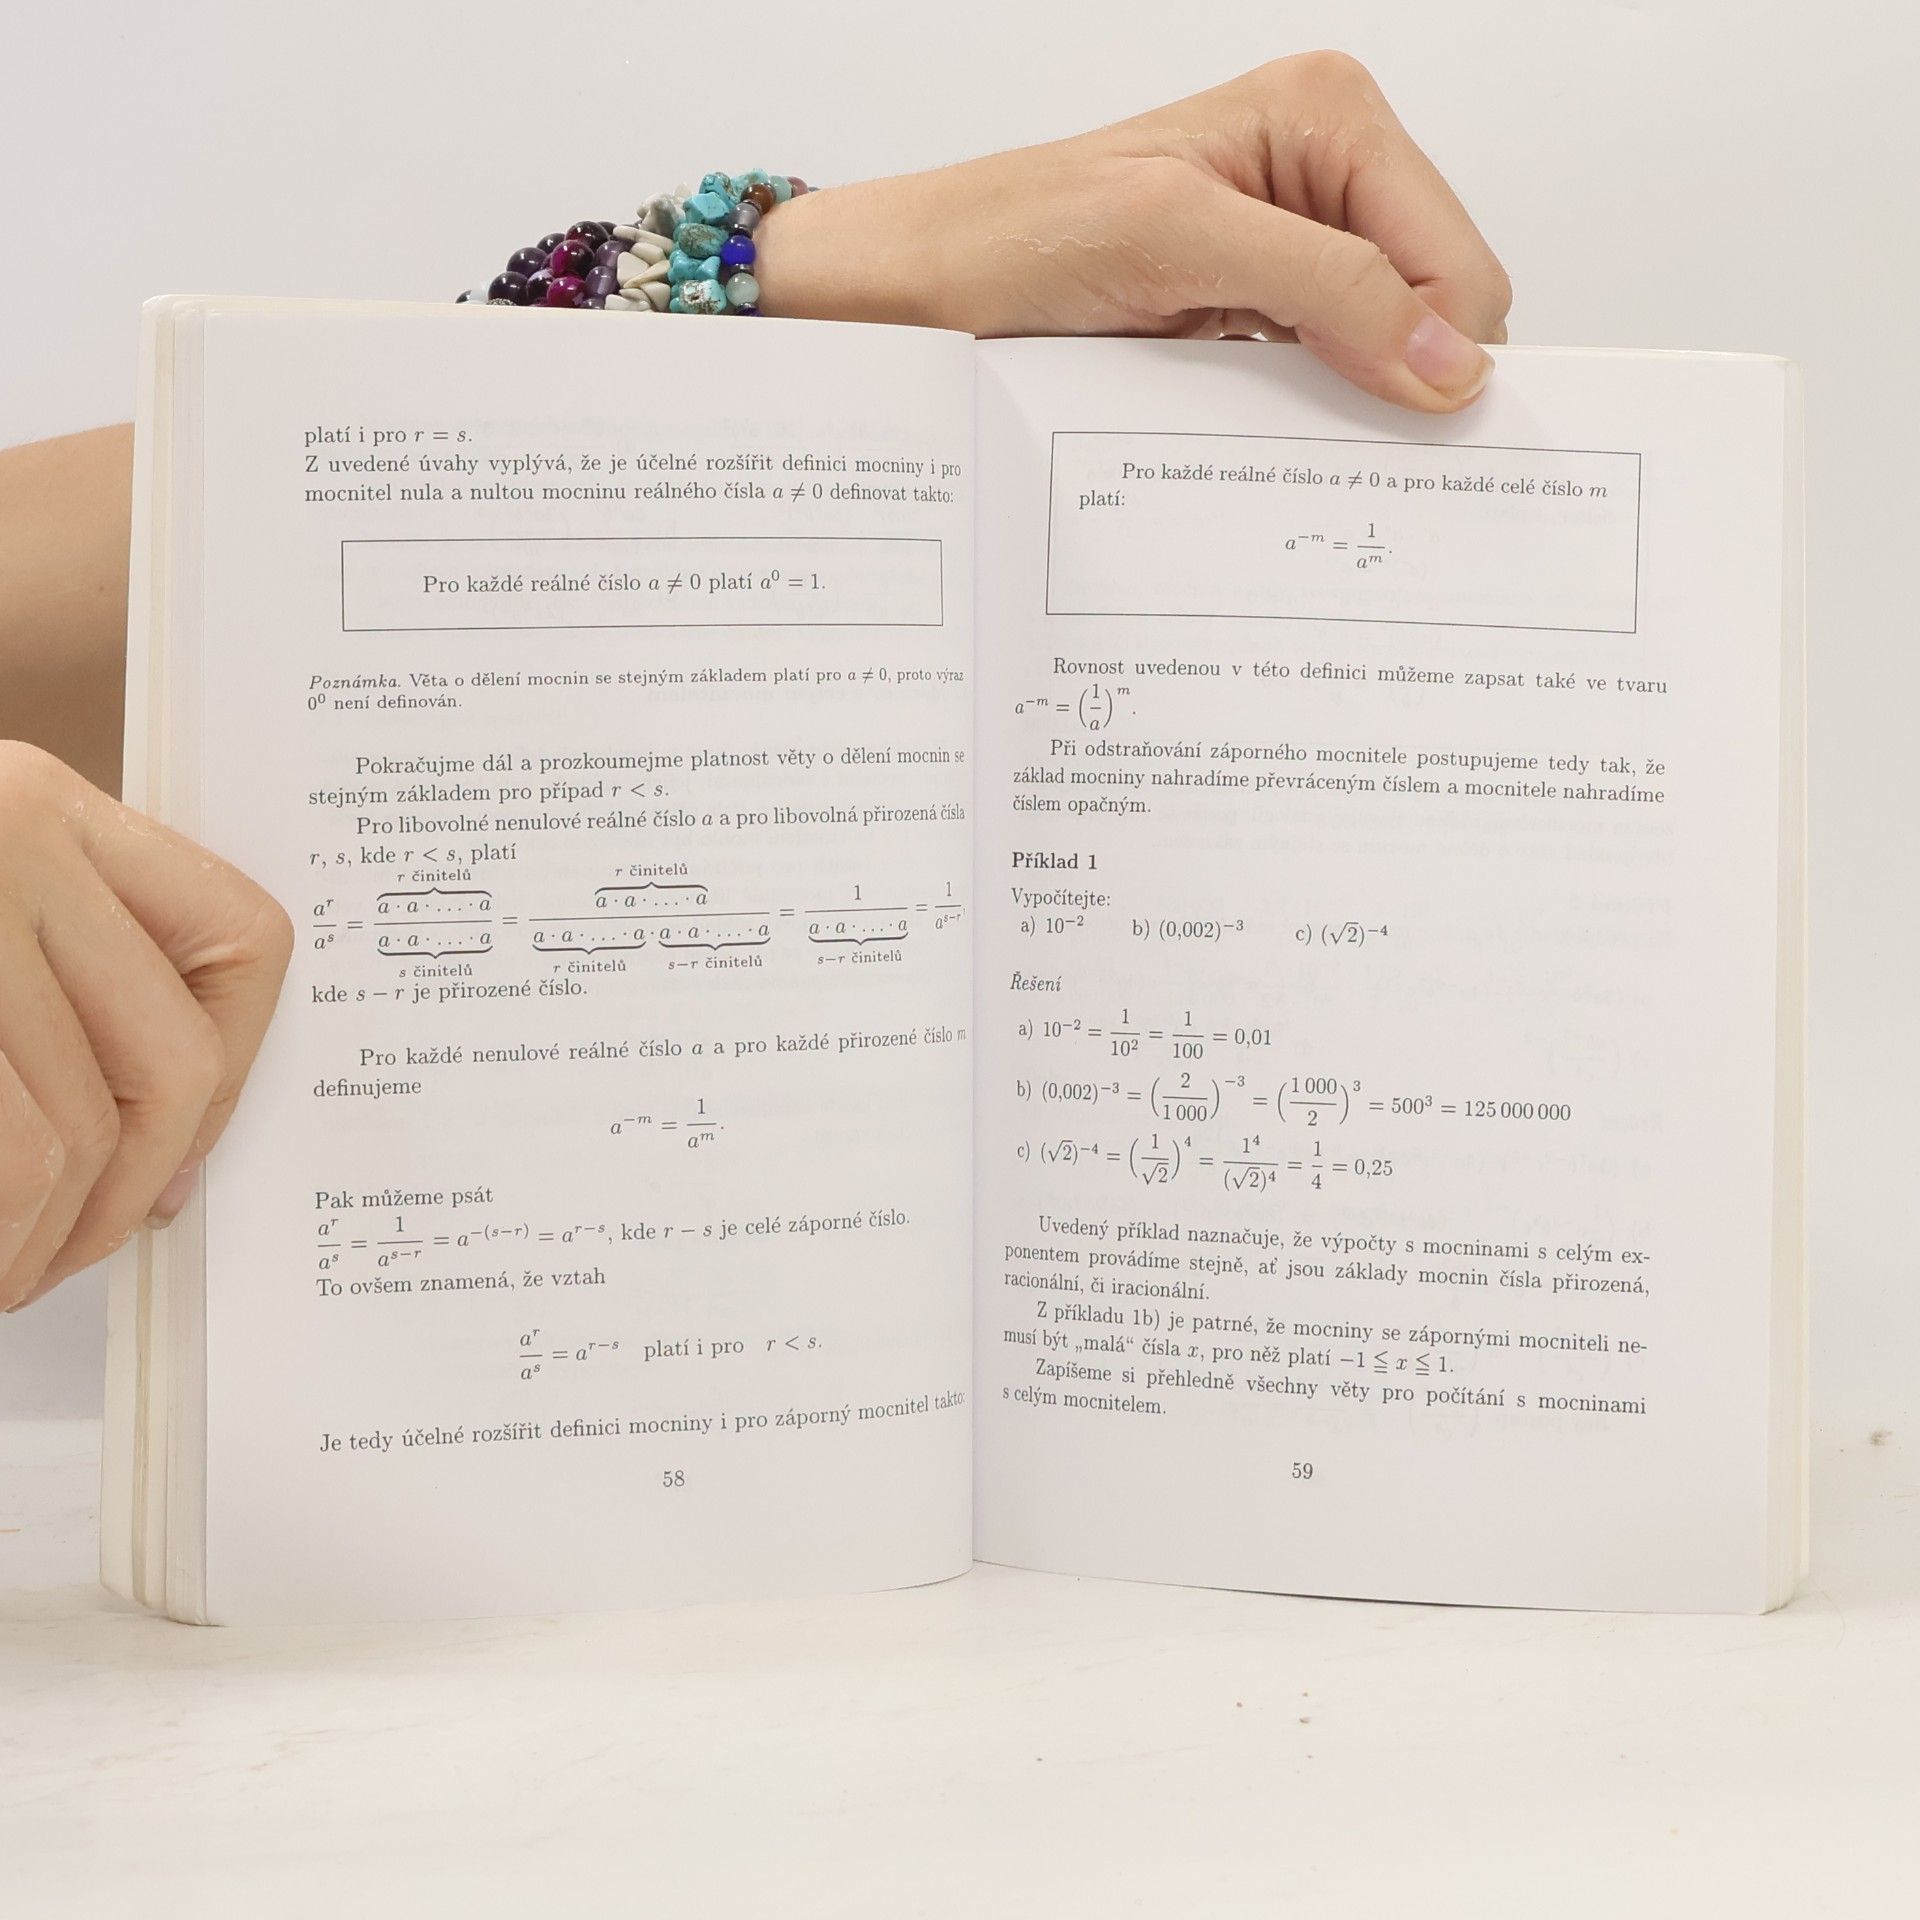 platí i pro r = s.
Z uvedené úvahy vyplývá, že je účelné rozšířit definici mocniny i pro
mocnitel nula a nultou mocninu reálného čísla a ≠ 0 definovat takto:
Pro každé reálné číslo a ≠ 0 platí a⁰ = 1.
Poznámka. Věta o dělení mocnin se stejným základem platí pro a ≠ 0, proto výraz
0⁰ není definován.
Pokračujme dál a prozkoumejme platnost věty o dělení mocnin se
stejným základem pro případ r < s.
Pro libovolné nenulové reálné číslo a a pro libovolná přirozená čísla
r, s, kde r < s, platí
r činitelů r činitelů
a^r/a^s = (a · a · … · a)/(a · a · … · a) = (a · a · … · a)/(a · a · … · a · a · a · … · a) = 1/(a · a · … · a) = 1/a^(s−r),
s činitelů r činitelů s−r činitelů s−r činitelů
kde s − r je přirozené číslo.
Pro každé nenulové reálné číslo a a pro každé přirozené číslo m
definujeme
a^(−m) = 1/a^m.
Pak můžeme psát
a^r/a^s = 1/a^(s−r) = a^(−(s−r)) = a^(r−s), kde r − s je celé záporné číslo.
To ovšem znamená, že vztah
a^r/a^s = a^(r−s) platí i pro r < s.
Je tedy účelné rozšířit definici mocniny i pro záporný mocnitel takto:
58
Pro každé reálné číslo a ≠ 0 a pro každé celé číslo m
platí:
a^(−m) = 1/a^m.
Rovnost uvedenou v této definici můžeme zapsat také ve tvaru
a^(−m) = (1/a)^m.
Při odstraňování záporného mocnitele postupujeme tedy tak, že
základ mocniny nahradíme převráceným číslem a mocnitele nahradíme
číslem opačným.
Příklad 1
Vypočítejte:
a) 10⁻² b) (0,002)⁻³ c) (√2)⁻⁴
Řešení
a) 10⁻² = 1/10² = 1/100 = 0,01
b) (0,002)⁻³ = (2/1 000)⁻³ = (1 000/2)³ = 500³ = 125 000 000
c) (√2)⁻⁴ = (1/√2)⁴ = 1⁴/(√2)⁴ = 1/4 = 0,25
Uvedený příklad naznačuje, že výpočty s mocninami s celým ex-
ponentem provádíme stejně, ať jsou základy mocnin čísla přirozená,
racionální, či iracionální.
Z příkladu 1b) je patrné, že mocniny se zápornými mocniteli ne-
musí být „malá“ čísla x, pro něž platí −1 ≦ x ≦ 1.
Zapíšeme si přehledně všechny věty pro počítání s mocninami
s celým mocnitelem.
59